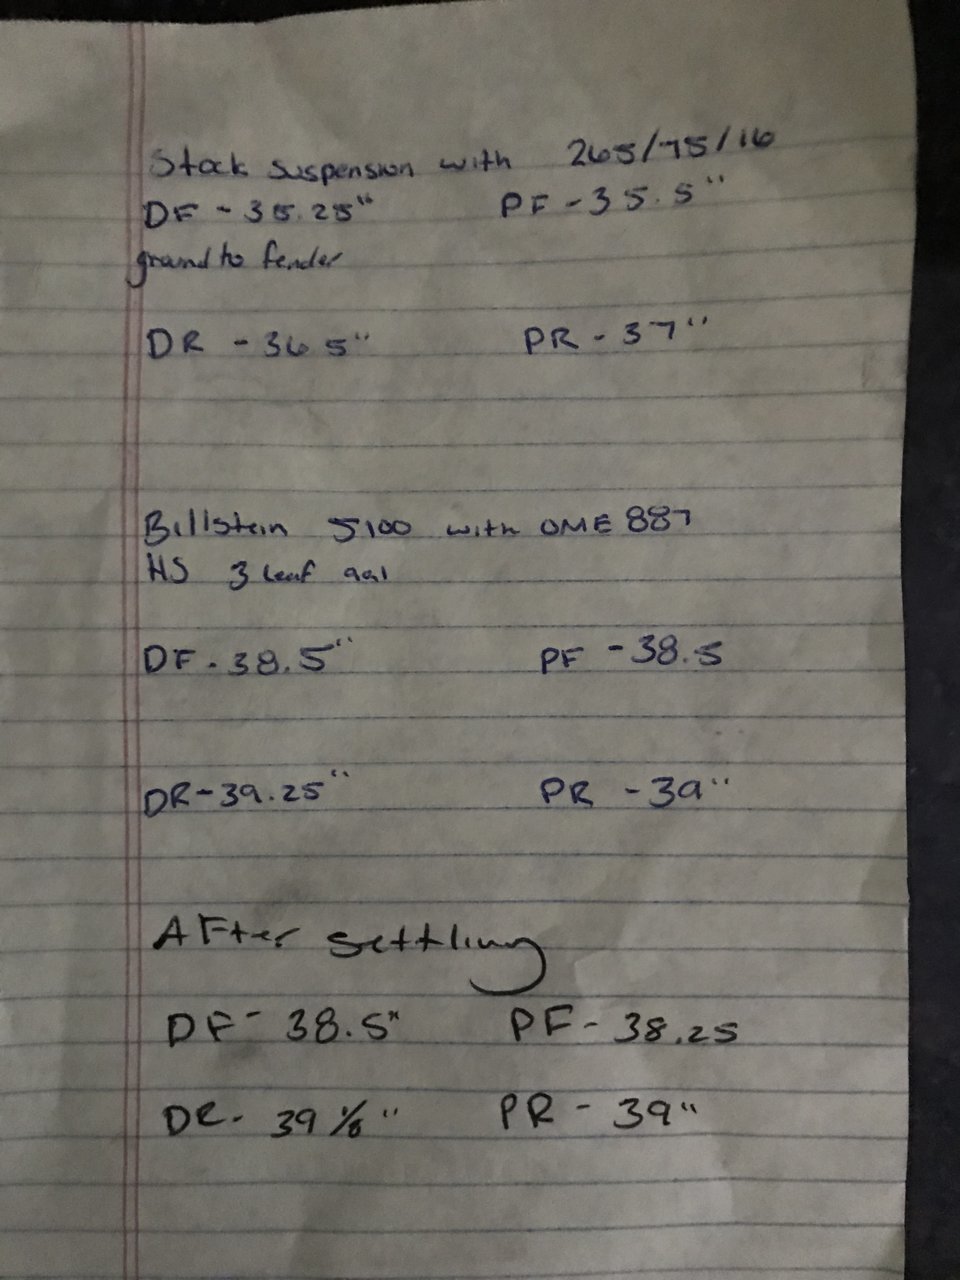 Stock suspension with 265/75/16
DF - 35.25" PF - 35.5"
ground to fender
DR - 36.5" PR - 37"
Billstein 5100 with OME 887
HS 3 leaf aal
DF - 38.5" PF - 38.5
DR - 39.25" PR - 39"
After settling
DF - 38.5" PF - 38.25
DR - 39 1/8" PR - 39"